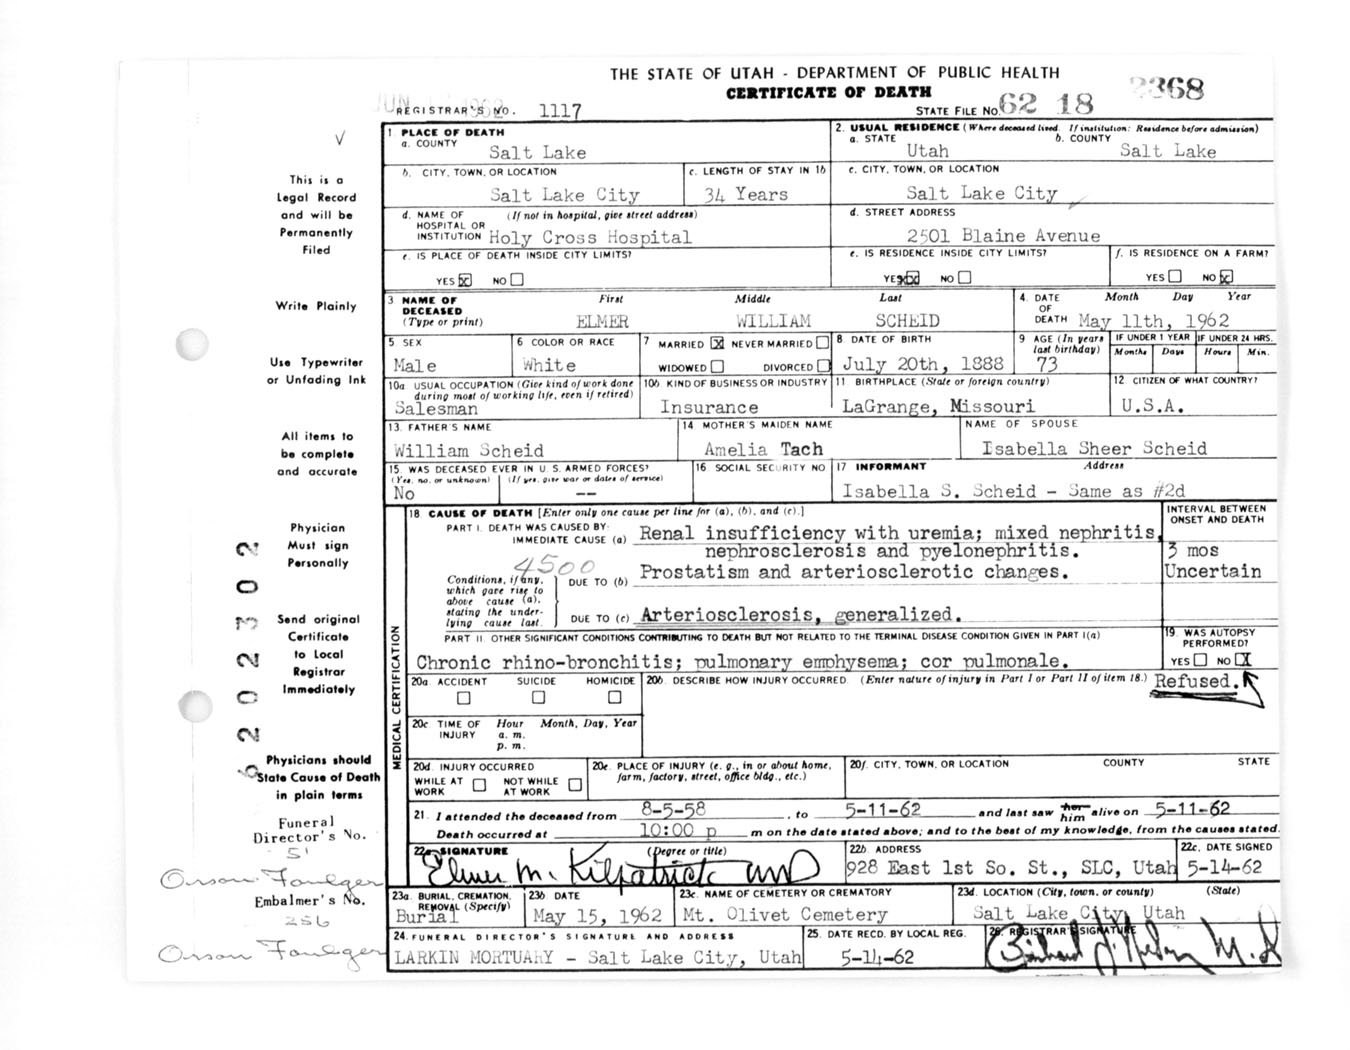 THE STATE OF UTAH - DEPARTMENT OF PUBLIC HEALTH
CERTIFICATE OF DEATH
2368
REGISTRAR'S NO. 1117
STATE FILE NO. 62 18
This is a
Legal Record
and will be
Permanently
Filed
Write Plainly
Use Typewriter
or Unfading Ink
All items to
be complete
and accurate
Physician
Must sign
Personally
Send original
Certificate
to Local
Registrar
Immediately
Physicians should
State Cause of Death
in plain terms
Funeral
Director's No.
51
Orson Faulger
Embalmer's No.
256
Orson Faulger
1. PLACE OF DEATH
a. COUNTY Salt Lake
2. USUAL RESIDENCE (Where deceased lived. If institution: Residence before admission)
a. STATE Utah b. COUNTY Salt Lake
b. CITY, TOWN, OR LOCATION Salt Lake City
c. LENGTH OF STAY IN 1b 34 Years
c. CITY, TOWN, OR LOCATION Salt Lake City
d. NAME OF (If not in hospital, give street address)
HOSPITAL OR
INSTITUTION Holy Cross Hospital
d. STREET ADDRESS 2501 Blaine Avenue
e. IS PLACE OF DEATH INSIDE CITY LIMITS?
YES X NO
e. IS RESIDENCE INSIDE CITY LIMITS?
YES X NO
f. IS RESIDENCE ON A FARM?
YES NO X
3 NAME OF DECEASED (Type or print) First Middle Last
ELMER WILLIAM SCHEID
4. DATE OF DEATH Month Day Year
May 11th, 1962
5 SEX Male
6 COLOR OR RACE White
7 MARRIED X NEVER MARRIED
WIDOWED DIVORCED
8 DATE OF BIRTH July 20th, 1888
9 AGE (In years last birthday) 73
IF UNDER 1 YEAR Months Days
IF UNDER 24 HRS. Hours Min.
10a USUAL OCCUPATION (Give kind of work done during most of working life, even if retired)
Salesman
10b. KIND OF BUSINESS OR INDUSTRY Insurance
11 BIRTHPLACE (State or foreign country) LaGrange, Missouri
12 CITIZEN OF WHAT COUNTRY? U.S.A.
13. FATHER'S NAME William Scheid
14 MOTHER'S MAIDEN NAME Amelia Tach
NAME OF SPOUSE Isabella Sheer Scheid
15. WAS DECEASED EVER IN U. S. ARMED FORCES?
(Yes, no, or unknown) (If yes, give war or dates of service)
No --
16. SOCIAL SECURITY NO
17 INFORMANT Address
Isabella S. Scheid - Same as #2d
MEDICAL CERTIFICATION
18 CAUSE OF DEATH [Enter only one cause per line for (a), (b), and (c).]
INTERVAL BETWEEN ONSET AND DEATH
PART I. DEATH WAS CAUSED BY:
IMMEDIATE CAUSE (a) Renal insufficiency with uremia; mixed nephritis,
nephrosclerosis and pyelonephritis. 3 mos
4500
Conditions, if any, which gave rise to above cause (a), stating the underlying cause last.
DUE TO (b) Prostatism and arteriosclerotic changes. Uncertain
DUE TO (c) Arteriosclerosis, generalized.
PART II. OTHER SIGNIFICANT CONDITIONS CONTRIBUTING TO DEATH BUT NOT RELATED TO THE TERMINAL DISEASE CONDITION GIVEN IN PART I(a)
Chronic rhino-bronchitis; pulmonary emphysema; cor pulmonale.
19. WAS AUTOPSY PERFORMED?
YES NO X
Refused.
20a. ACCIDENT SUICIDE HOMICIDE
20b. DESCRIBE HOW INJURY OCCURRED. (Enter nature of injury in Part I or Part II of item 18.)
20c. TIME OF INJURY Hour Month, Day, Year
a. m.
p. m.
20d. INJURY OCCURRED
WHILE AT WORK NOT WHILE AT WORK
20e. PLACE OF INJURY (e. g., in or about home, farm, factory, street, office bldg., etc.)
20f. CITY, TOWN, OR LOCATION COUNTY STATE
21. I attended the deceased from 8-5-58, to 5-11-62 and last saw her him alive on 5-11-62
Death occurred at 10:00 p m on the date stated above; and to the best of my knowledge, from the causes stated.
22a. SIGNATURE (Degree or title)
Elmer M. Kilpatrick MD
22b. ADDRESS 928 East 1st So. St., SLC, Utah
22c. DATE SIGNED 5-14-62
23a. BURIAL, CREMATION, REMOVAL (Specify) Burial
23b. DATE May 15, 1962
23c. NAME OF CEMETERY OR CREMATORY Mt. Olivet Cemetery
23d. LOCATION (City, town, or county) (State)
Salt Lake City, Utah
24. FUNERAL DIRECTOR'S SIGNATURE AND ADDRESS
LARKIN MORTUARY - Salt Lake City, Utah
25. DATE RECD. BY LOCAL REG. 5-14-62
26. REGISTRAR'S SIGNATURE